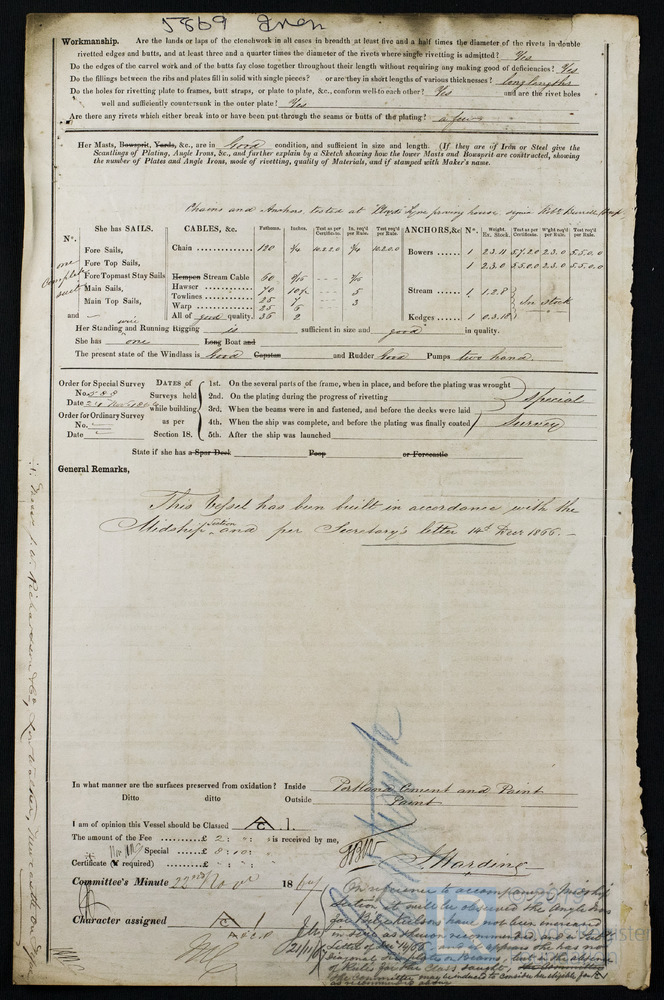 5869 Iron
Workmanship. Are the lands or laps of the clenchwork in all cases in breadth at least five and a half times the diameter of the rivets in double
rivetted edges and butts, and at least three and a quarter times the diameter of the rivets where single rivetting is admitted? Yes
Do the edges of the carvel work and of the butts fay close together throughout their length without requiring any making good of deficiencies? Yes
Do the fillings between the ribs and plates fill in solid with single pieces? or are they in short lengths of various thicknesses? long lengths
Do the holes for rivetting plate to frames, butt straps, or plate to plate, &c., conform well to each other? Yes and are the rivet holes
well and sufficiently countersunk in the outer plate? Yes
Are there any rivets which either break into or have been put through the seams or butts of the plating? a few
Her Masts, Bowsprit, Yards, &c., are in Good condition, and sufficient in size and length. (If they are of Iron or Steel give the
Scantlings of Plating, Angle Irons, &c., and further explain by a Sketch showing how the lower Masts and Bowsprit are constructed, showing
the number of Plates and Angle Irons, mode of rivetting, quality of Materials, and if stamped with Maker's name.
Chains and Anchors tested at Lloyds Tyne proving house
N°. She has SAILS. CABLES, &c. Fathoms. Inches. Test as per Certificate. In. req'd per Rule. Test req'd per Rule. ANCHORS, &c N°. Weight. Ex. Stock. Test as per Certificate W'ght req'd per Rule. Test req'd per Rule.
one complete suit
Fore Sails, Chain 120 Bowers 1
Fore Top Sails, 1
Fore Topmast Stay Sails Hempen Stream Cable 60
Main Sails, Hawser 70 5 Stream 1 1.2.8
Main Top Sails, Towlines 25 7 3 In stock
Warp 25 6
and All of good quality. 35 2 Kedges 1
Her Standing wire and Running Rigging is sufficient in size and good in quality.
She has one Long Boat and
The present state of the Windlass is Good Capstan and Rudder Good Pumps two hand.
Order for Special Survey
No. 588
Date
Order for Ordinary Survey
No.
Date
DATES of Surveys held while building as per Section 18.
1st. On the several parts of the frame, when in place, and before the plating was wrought
2nd. On the plating during the progress of rivetting
3rd. When the beams were in and fastened, and before the decks were laid
4th. When the ship was complete, and before the plating was finally coated
5th. After the ship was launched
Special Survey
State if she has a Spar Deck Poop or Forecastle
General Remarks,
This Vessel has been built in accordance with the
Midship Section and per Secretary's letter 14th Decr 1866.
In what manner are the surfaces preserved from oxidation? Inside Portland Cement and Paint
Ditto ditto Outside Paint
I am of opinion this Vessel should be Classed A 1.
The amount of the Fee £ 2 : : is received by me,
Special £ 8 : 10 :
Certificate (if required) £ : :
J. Harding
Committee's Minute 22nd Novr 1867
Character assigned A 1
21/11/67
On reference to accompanying Midship
Section it will be observed the Angle Irons
for Bilge Keelsons have not been increased
in size as therein recommended, and in Sec
letter of 14/12/66 and it appears she has no
diagonal tie plates on Beams, but in the absence
of Rules for the Class sought,
the Committee may be induced to consider her eligible for
as recommended above